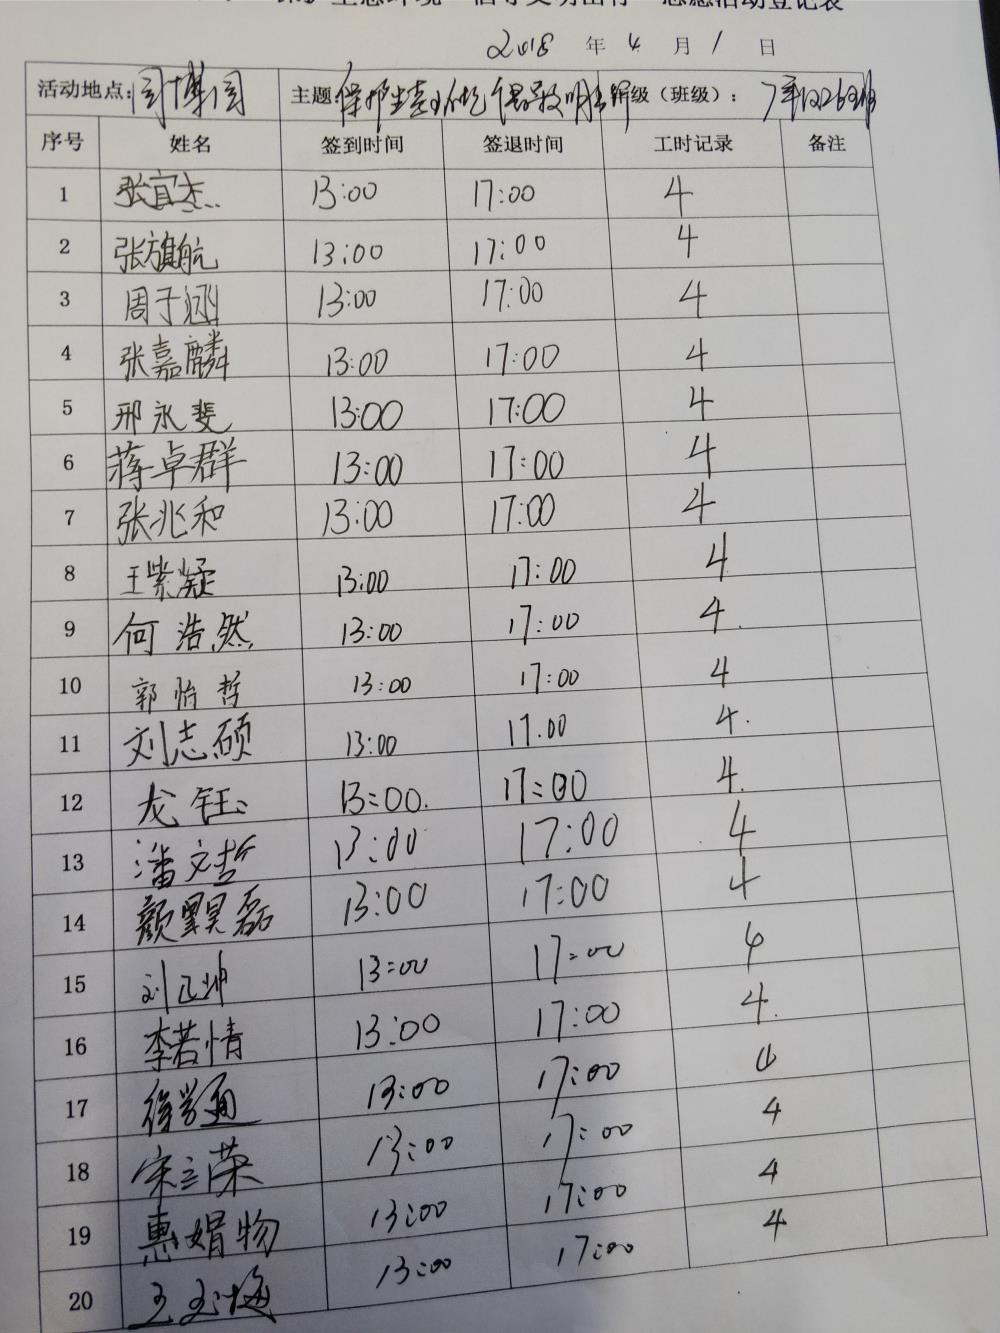 保护生态环境 倡导文明出行 志愿活动登记表
2018 年 4 月 1 日
活动地点: 园博园 主题: 保护生态环境 倡导文明出行 年级(班级):
序号 姓名 签到时间 签退时间 工时记录 备注
1 张宜杰 13:00 17:00 4
2 张旗航 13:00 17:00 4
3 周于涵 13:00 17:00 4
4 张嘉麟 13:00 17:00 4
5 邢永斐 13:00 17:00 4
6 蒋卓群 13:00 17:00 4
7 张兆和 13:00 17:00 4
8 王紫凝 13:00 17:00 4
9 何浩然 13:00 17:00 4
10 郭怡哲 13:00 17:00 4
11 刘志硕 13:00 17:00 4
12 龙钰 13:00 17:00 4
13 潘文哲 13:00 17:00 4
14 颜 磊 13:00 17:00 4
15 刘 帅 13:00 17:00 4
16 李若情 13:00 17:00 4
17 徐学通 13:00 17:00 4
18 宋立荣 13:00 17:00 4
19 惠娟物 13:00 17:00 4
20 王玉梅 13:00 17:00 4